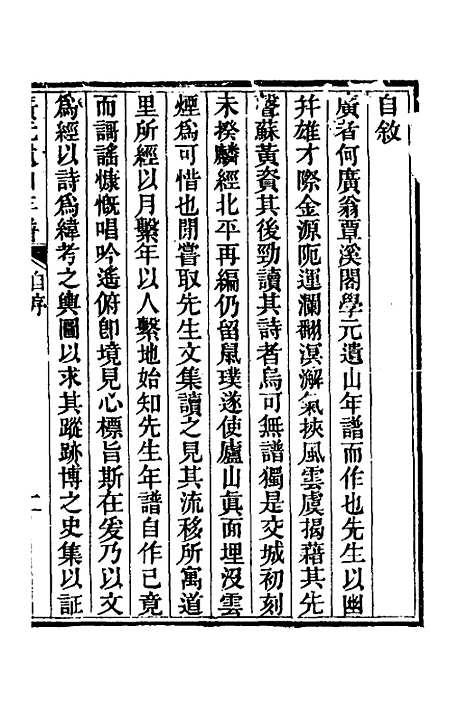 自敘
廣者何廣翁覃溪閣學元遺山年譜而作也先生以幽
幷雄才際金源阨運瀾翻溟澥氣挾風雲虞揭藉其先
聲蘇黃資其後勁讀其詩者烏可無譜獨是交城初刻
未揆麟經北平再編仍留鼠璞遂使廬山眞面埋沒雲
煙爲可惜也閒嘗取先生文集讀之見其流移所寓道
里所經以月繫年以人繫地始知先生年譜自作已竟
而謌謠慷慨唱吟遙俯卽境見心標旨斯在爰乃以文
爲經以詩爲緯考之輿圖以求其蹤跡博之史集以証
廣元遺山年譜
自序
一